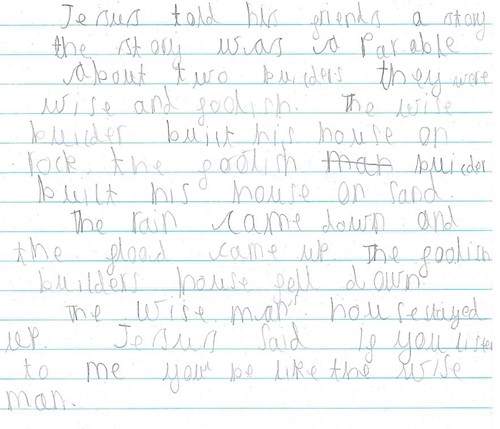 Jesus told his friends a story
the story was a Parable
About two builders they were
wise and foolish. The wise
builder built his house on
rock the foolish man builder
built his house on sand.
The rain came down and
the flood came up The foolish
builders house fell down
The wise man house stayed
up. Jesus said if you listen
to me you be like the wise
man.